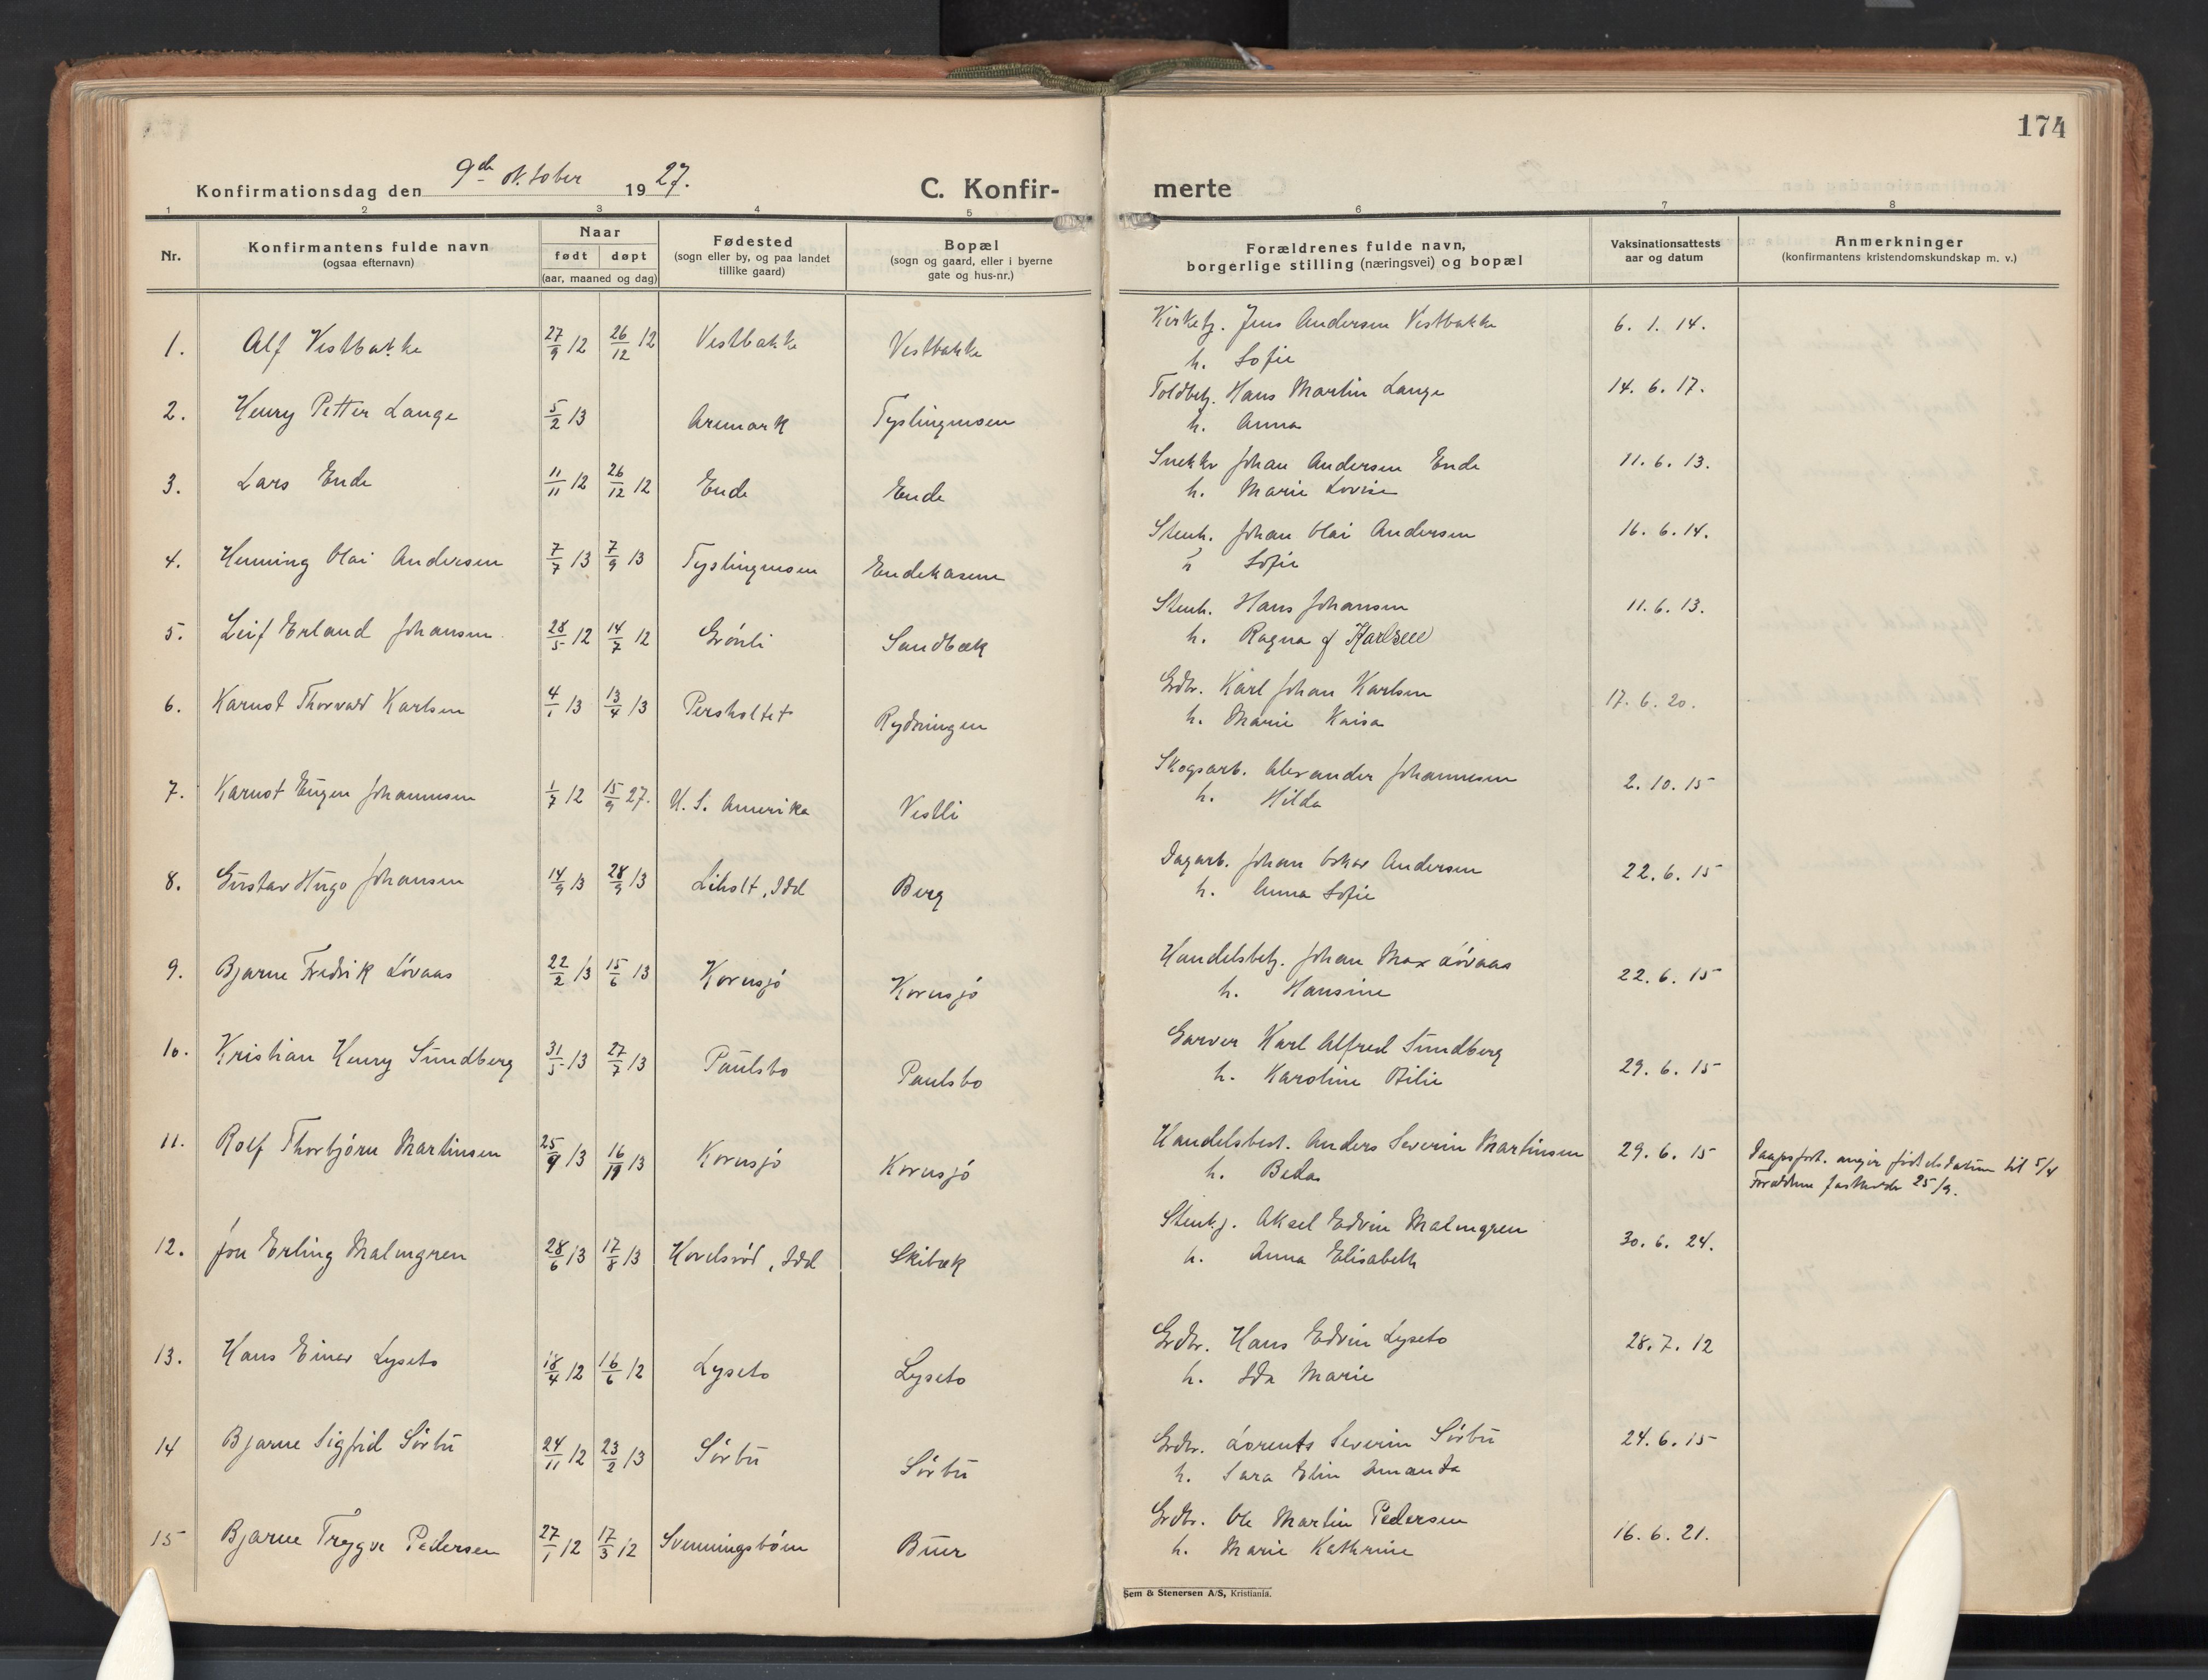 174
Konfirmationsdag den 9de oktober 1927. C. Konfir- merte
1 2 3 4 5 6 7 8
Nr.
Konfirmantens fulde navn
(ogsaa efternavn)
Naar
født døpt
(aar, maaned og dag)
Fødested
(sogn eller by, og paa landet
tillike gaard)
Bopæl
(sogn og gaard, eller i byerne
gate og hus-nr.)
Forældrenes fulde navn,
borgerlige stilling (næringsvei) og bopæl
Vaksinationsattests
aar og datum
Anmerkninger
(konfirmantens kristendomskundskap m. v.)
1. Alf Vestbakke 27/9 12 26/12 12 Vestbakke Vestbakke Kirketj. Jens Andersen Vestbakke 6. 1. 14.
h. Sofie
2. Henry Petter Lange 5/2 13 Aremark Tyslingmosen Toldbetj. Hans Martin Lange 14. 6. 17.
h. Anna
3. Lars Ende 11/11 12 26/12 12 Ende Ende Snekker Johan Andersen Ende 11. 6. 13.
h. Marie Lovise
4. Henning Olai Andersen 7/7 13 7/9 13 Tyslingmosen Endekasene Stenh. Johan Olai Andersen 16. 6. 14.
h Sofie
5. Leif Erland Johansen 28/5 12 14/7 12 Grönli Sandbæk Stenh. Hans Johansen 11. 6. 13.
h. Ragna f Karlsen
6. Karnot Thorvald Karlsen 4/1 13 13/4 13 Persholtet Rydningen Grdbr. Karl Johan Karlsen 17. 6. 20.
h. Marie Kaisa
7. Karnot Eugen Johannesen 1/7 12 15/9 27. U. S. Amerika Vestli Skogsarb. Alexander Johannesen 2. 10. 15
h. Hilda
8. Gustav Hugo Johansen 14/9 13 28/9 13 Liholt, Idd Berg Dagarb. Johan Oskar Andersen 22. 6. 15
h. Anna Sofie
9. Bjarne Fredrik Lövaas 22/2 13 15/6 13 Kornsjö Kornsjö Handelsbetj. Johan Max Lövaas 22. 6. 15
h. Hansine
10. Kristian Henry Sundberg 31/5 13 27/7 13 Paulsbo Paulsbo Garver Karl Alfred Sundberg 29. 6. 15
h. Karoline Otilie
11. Rolf Thorbjörn Martinsen 25/9 13 16/11 13 Kornsjö Kornsjö Handelsbest. Anders Severin Martinsen 29. 6. 15 Daapsprt. angir födselsdatum til 5/4
h. Beda Forældrene fastholder 25/9.
12. Jon Erling Malmgren 28/6 13 17/8 13 Kovelsröd, Idd Skibæk Stenh. Aksel Edvin Malmgren 30. 6. 24.
h. Anna Elisabeth
13. Hans Einar Lyseto 18/4 12 16/6 12 Lyseto Lyseto Grdbr. Hans Edvin Lyseto 28. 7. 12
h. Ida Marie
14 Bjarne Sigfrid Sörbü 24/11 12 23/2 13 Sörbü Sörbü Grdbr. Lorents Severin Sörbü 24. 6. 15
h. Sara Elin Amanda
15 Bjarne Trygve Pedersen 27/1 12 17/3 12 Svenningsböen Buer Grdbr. Ole Martin Pedersen 16. 6. 21.
h. Marie Kathrine
Sem & Stenersen A/S, Kristiania.